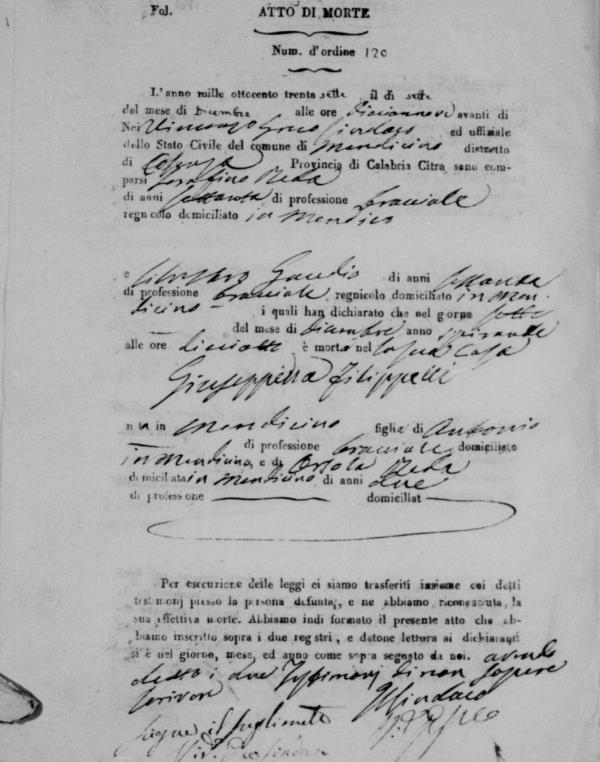 Fol. ATTO DI MORTE
Num. d'ordine 120
L'anno mille ottocento trenta sette il di sette
del mese di Dicembre alle ore diciannove avanti di
Noi Vincenzo Greco Sindaco ed uffiziale
dello Stato Civile del comune di Mendicino distretto
di Cosenza Provincia di Calabria Citra sono com-
parsi Serafino Reda
di anni settanta di professione bracciale
regnicolo domiciliato in Mendicino
e Silvestro Gaudio di anni settanta
di professione bracciale regnicolo domiciliato in Men-
dicino i quali han dichiarato che nel giorno sette
del mese di Dicembre anno spirante
alle ore diciotto è morta nel la sua casa
Giuseppella Filippelli
nata in Mendicino figlia di Antonio
di professione bracciale domiciliato
in Mendicino e di Orsola Reda
domiciliata in Mendicino di anni due
di professione domiciliat
Per esecuzione delle leggi ci siamo trasferiti insieme coi detti
testimonj presso la persona defunta, e ne abbiamo riconosciuta, la
sua effettiva morte. Abbiamo indi formato il presente atto che ab-
biamo inscritto sopra i due registri, e datone lettura ai dichiaranti
si è nel giorno, mese, ed anno come sopra segnato da noi. avendo
detto i due Testimonj di non sapere
scrivere Il Sindaco
Segue il supplimento Greco